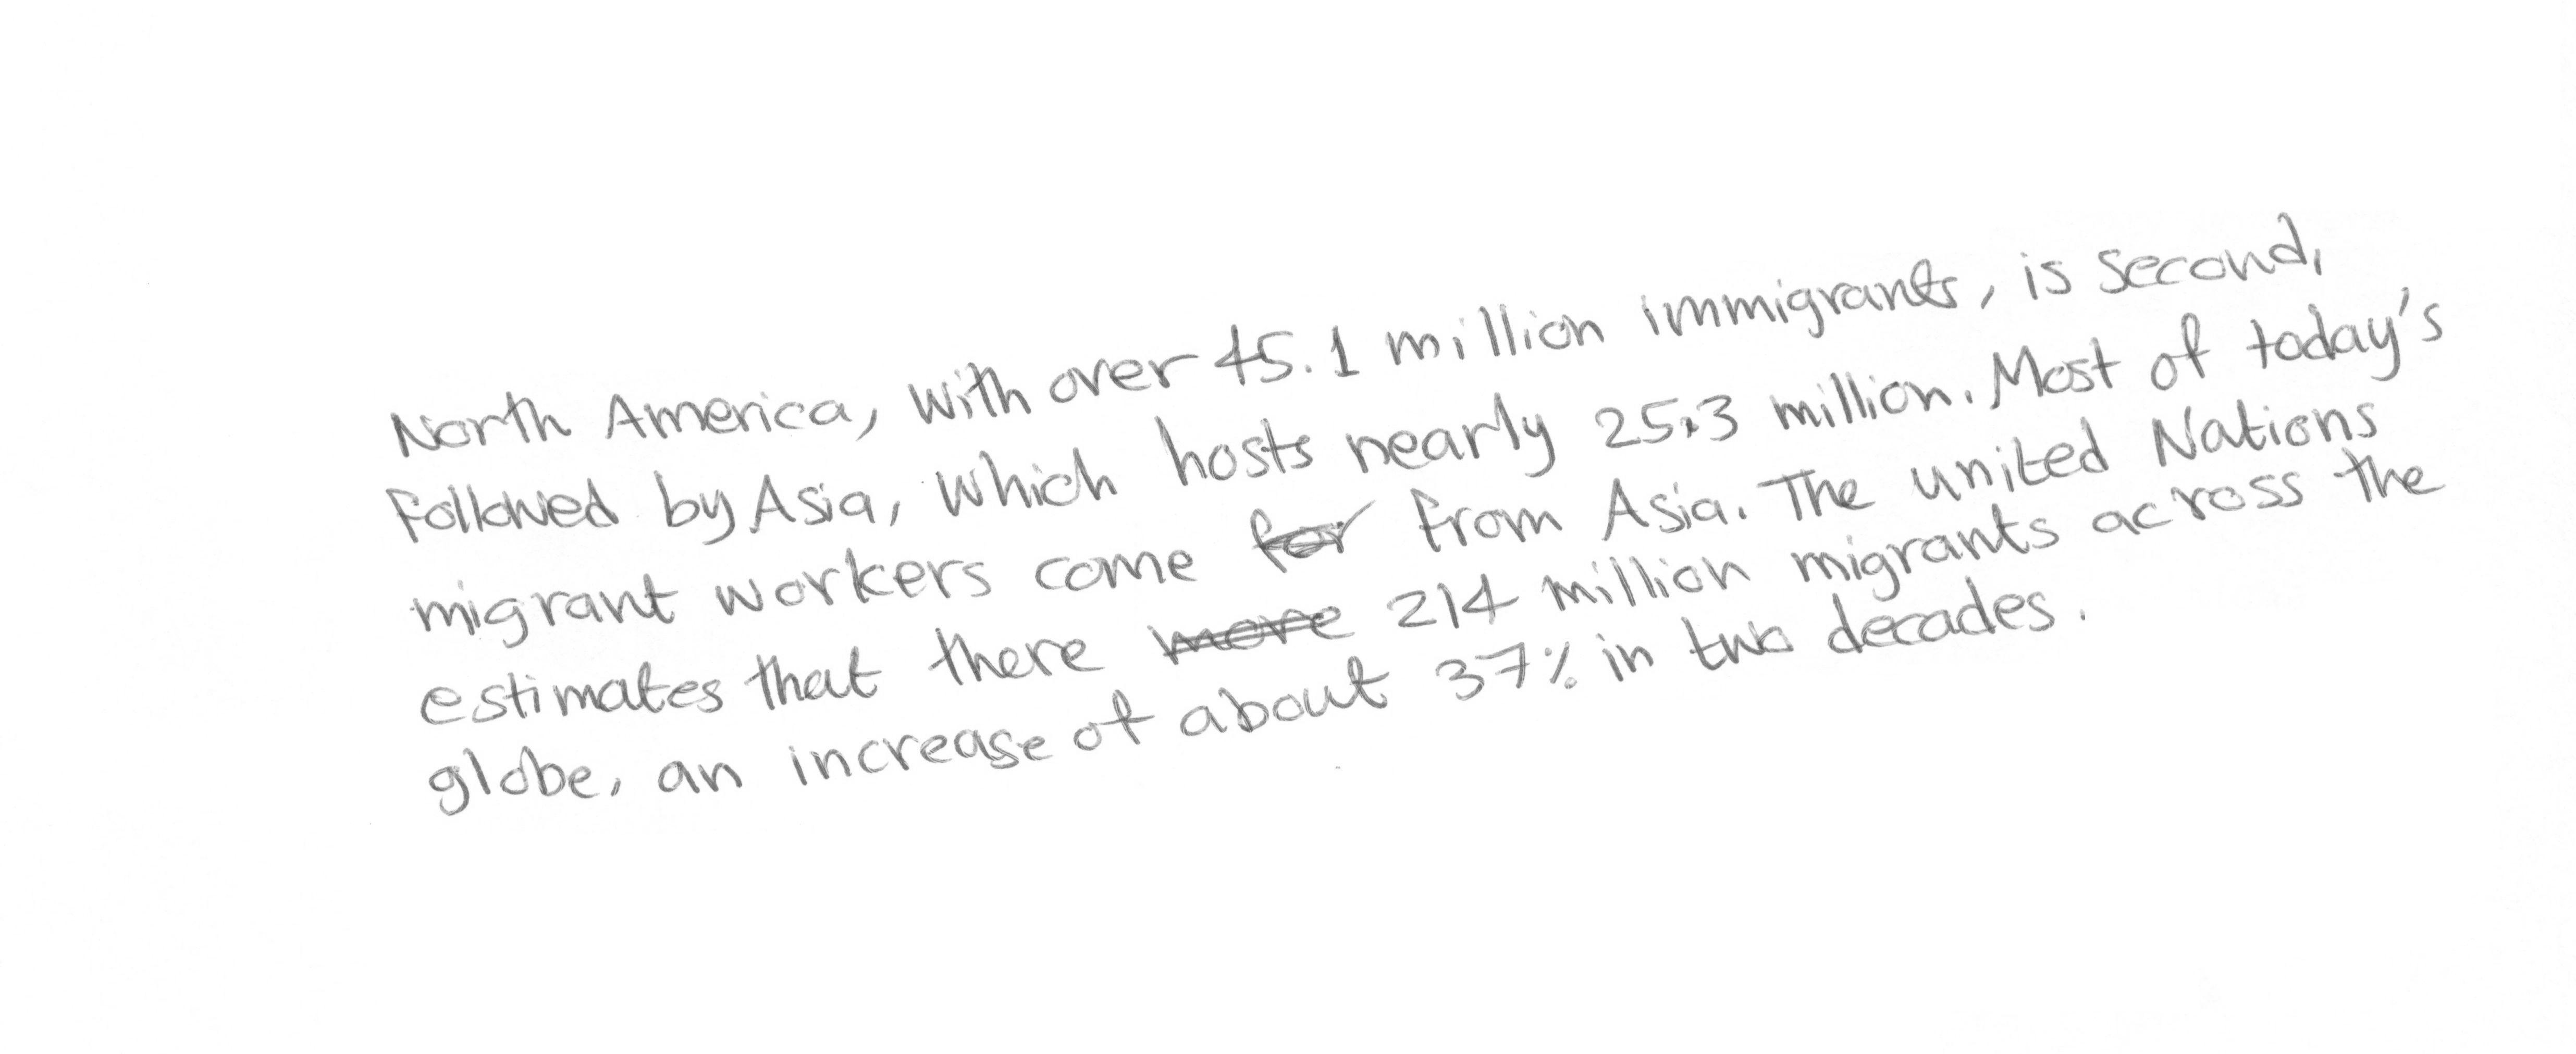 North America, with over 45.1 million immigrants, is second,
followed by Asia, which hosts nearly 25.3 million. Most of today's
migrant workers come for from Asia. The united Nations
estimates that there more 214 million migrants across the
globe, an increase of about 37% in two decades.